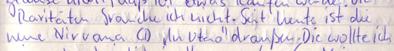 etwas kaufen werde, die
Raritäten brauche ich nicht. Seit heute ist die
neue Nirvana CD „In Utero" draußen. Die wollte ich